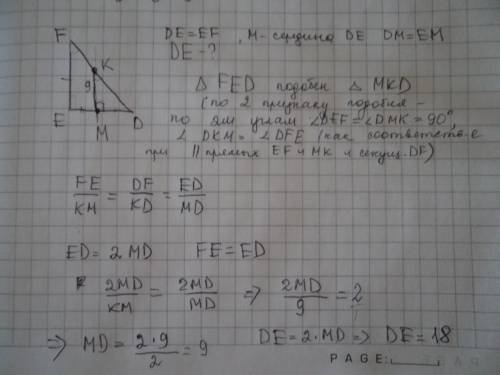 DE = EF, M - середина DE DM = EM
DE - ?
F
K
9
E
M
D
△ FED подобен △ MKD
(по 2 признаку подобия -
по 2м углам ∠DEF = ∠DMK = 90°,
∠ DKM = ∠DFE (как соответств-е
при || прямых EF и MK и секущ. DF)
FE/KM = DF/KD = ED/MD
ED = 2MD FE = ED
2MD/KM = 2MD/MD ⇒ 2MD/9 = 2
⇒ MD = 2·9/2 = 9 DE = 2·MD ⇒ DE = 18
PAGE: